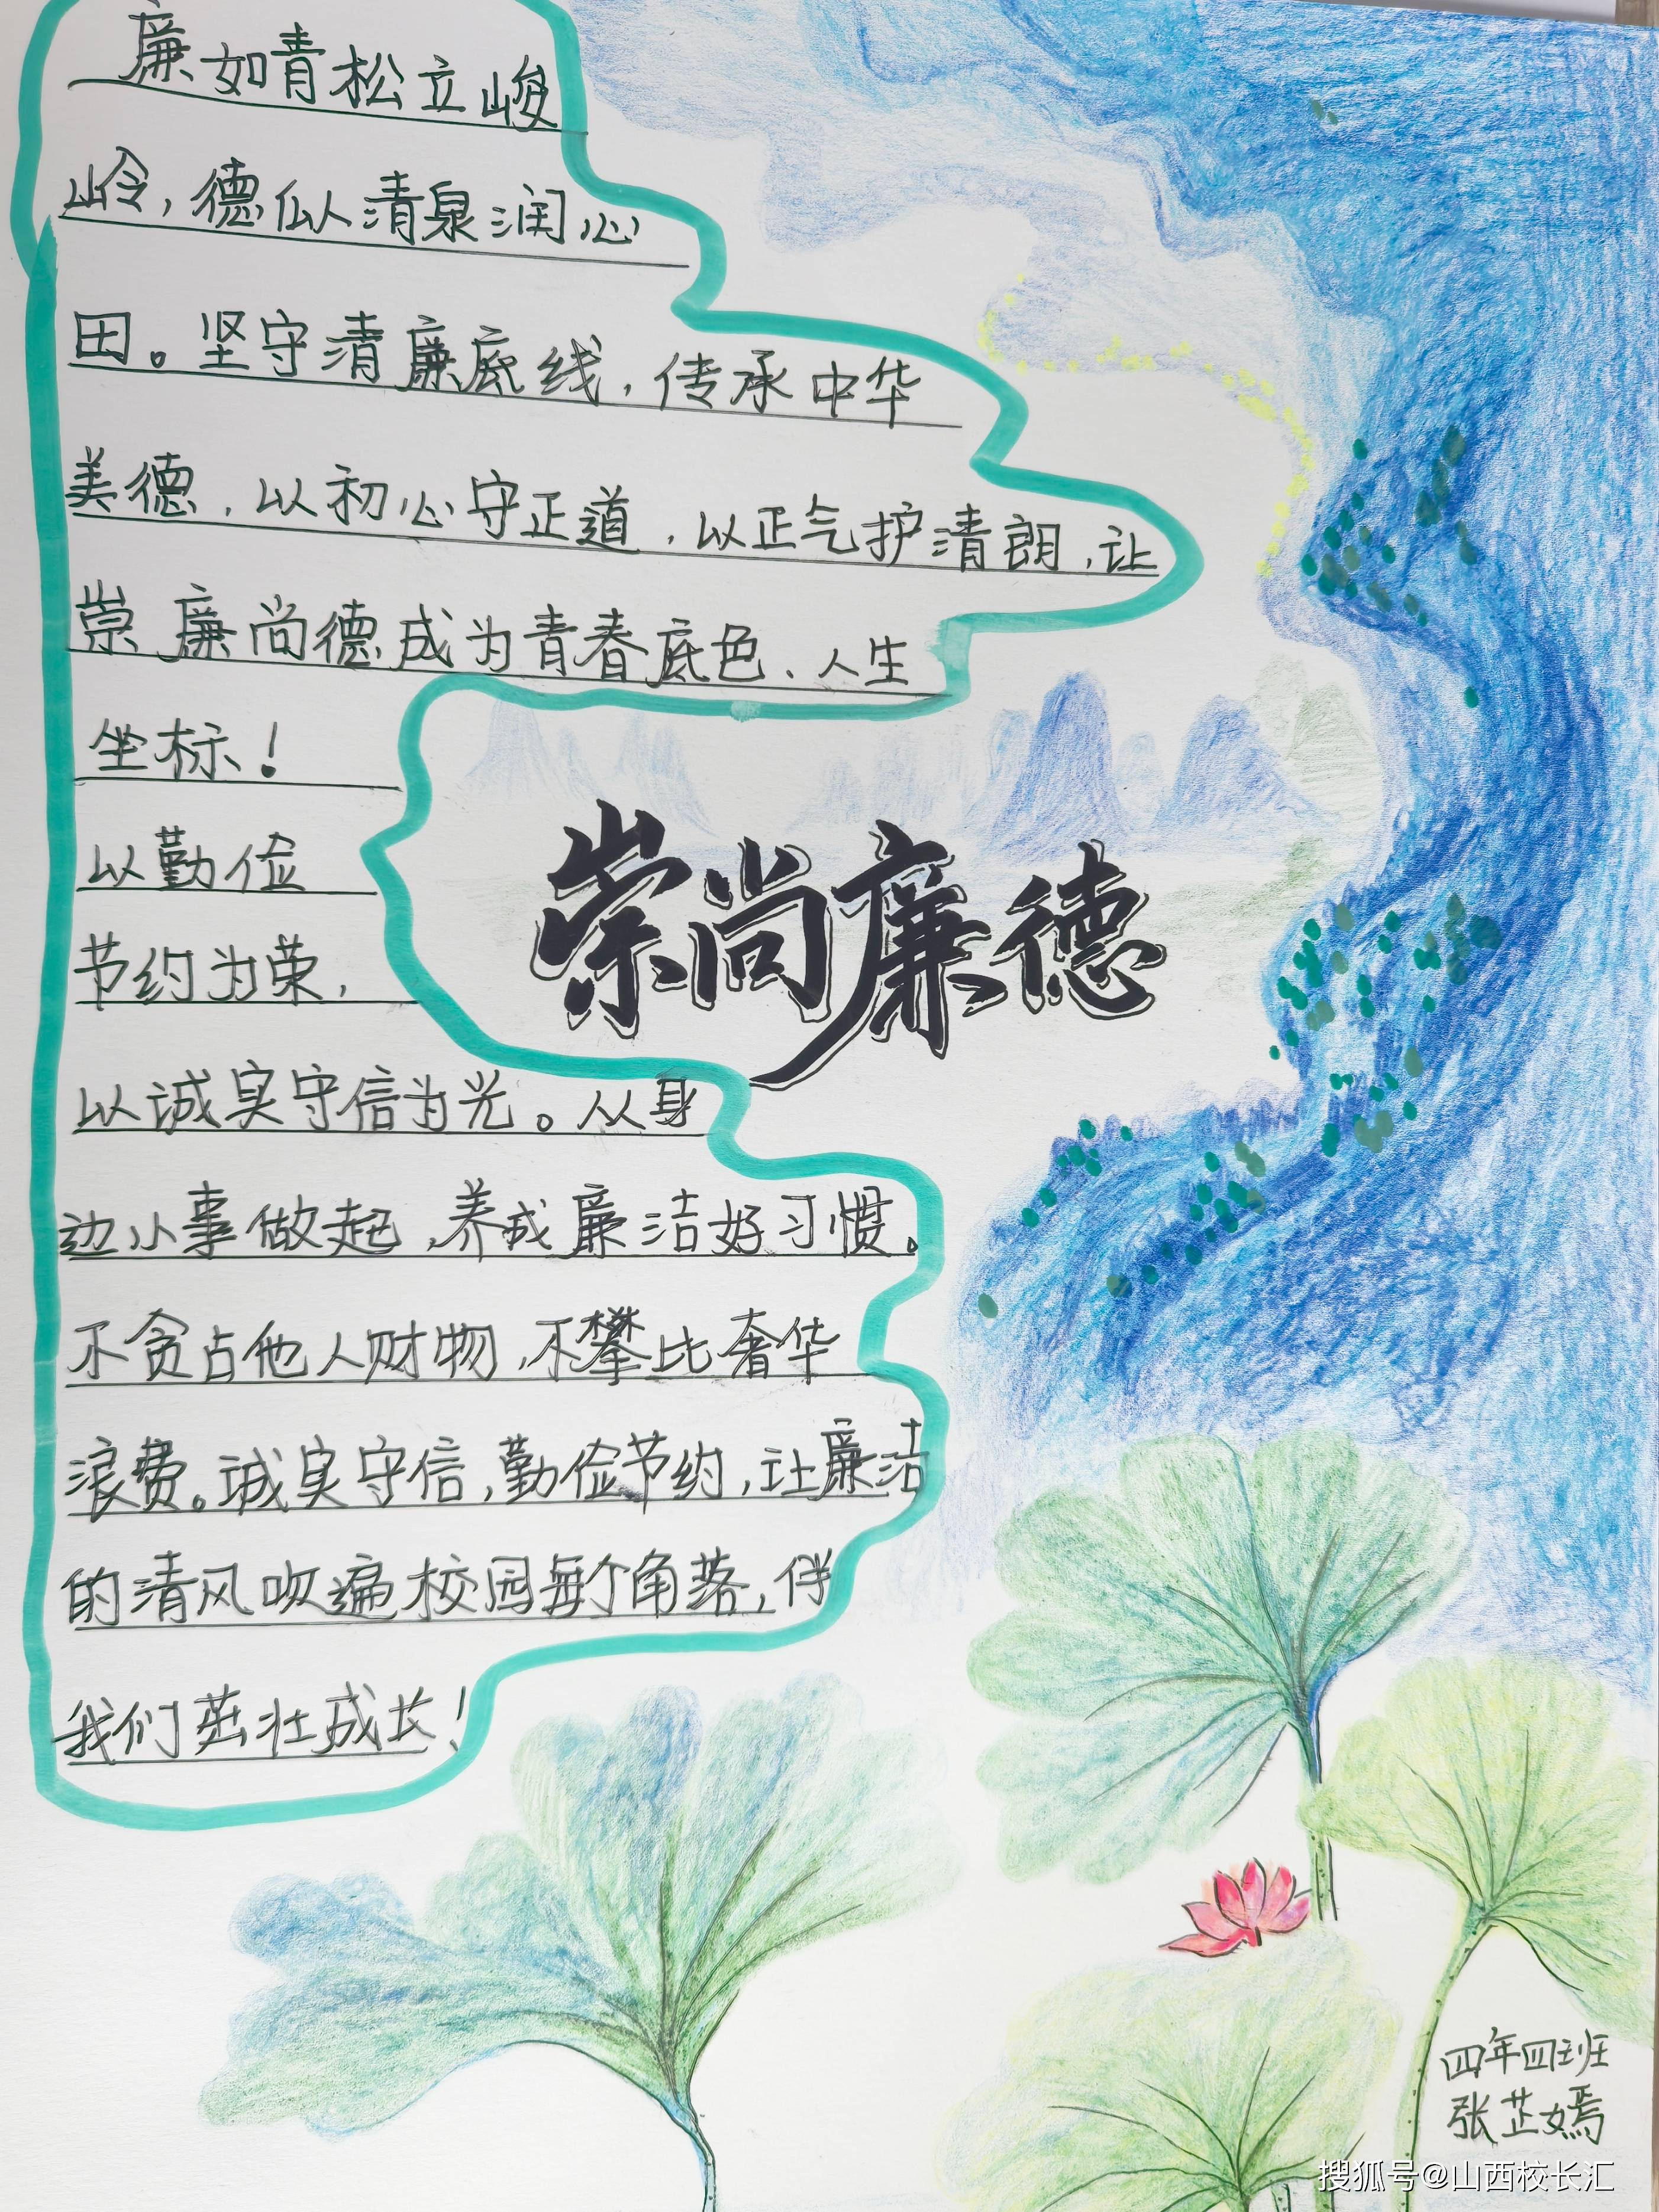 廉如青松立峻
岭，德似清泉润心
田。坚守清廉底线，传承中华
美德，以初心守正道，以正气护清朗，让
崇廉尚德成为青春底色、人生
坐标！
以勤俭
节约为荣，
以诚实守信为光。从身
边小事做起，养成廉洁好习惯。
不贪占他人财物，不攀比奢华
浪费。诚实守信，勤俭节约，让廉洁
的清风吹遍校园每个角落，伴
我们茁壮成长！
崇尚廉德
四年四班
张芷嫣
搜狐号@山西校长汇